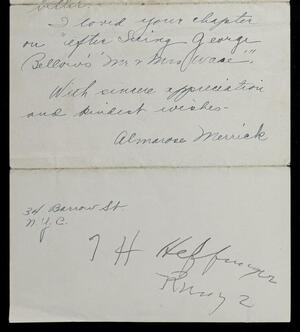 I loved your chapter
on "after Seeing George
Bellows' Mr & Mrs Wase."
With sincere appreciation
and kindest wishes-
Almarose Merrick
34 Barrow St.
N.Y.C.
7 H
2